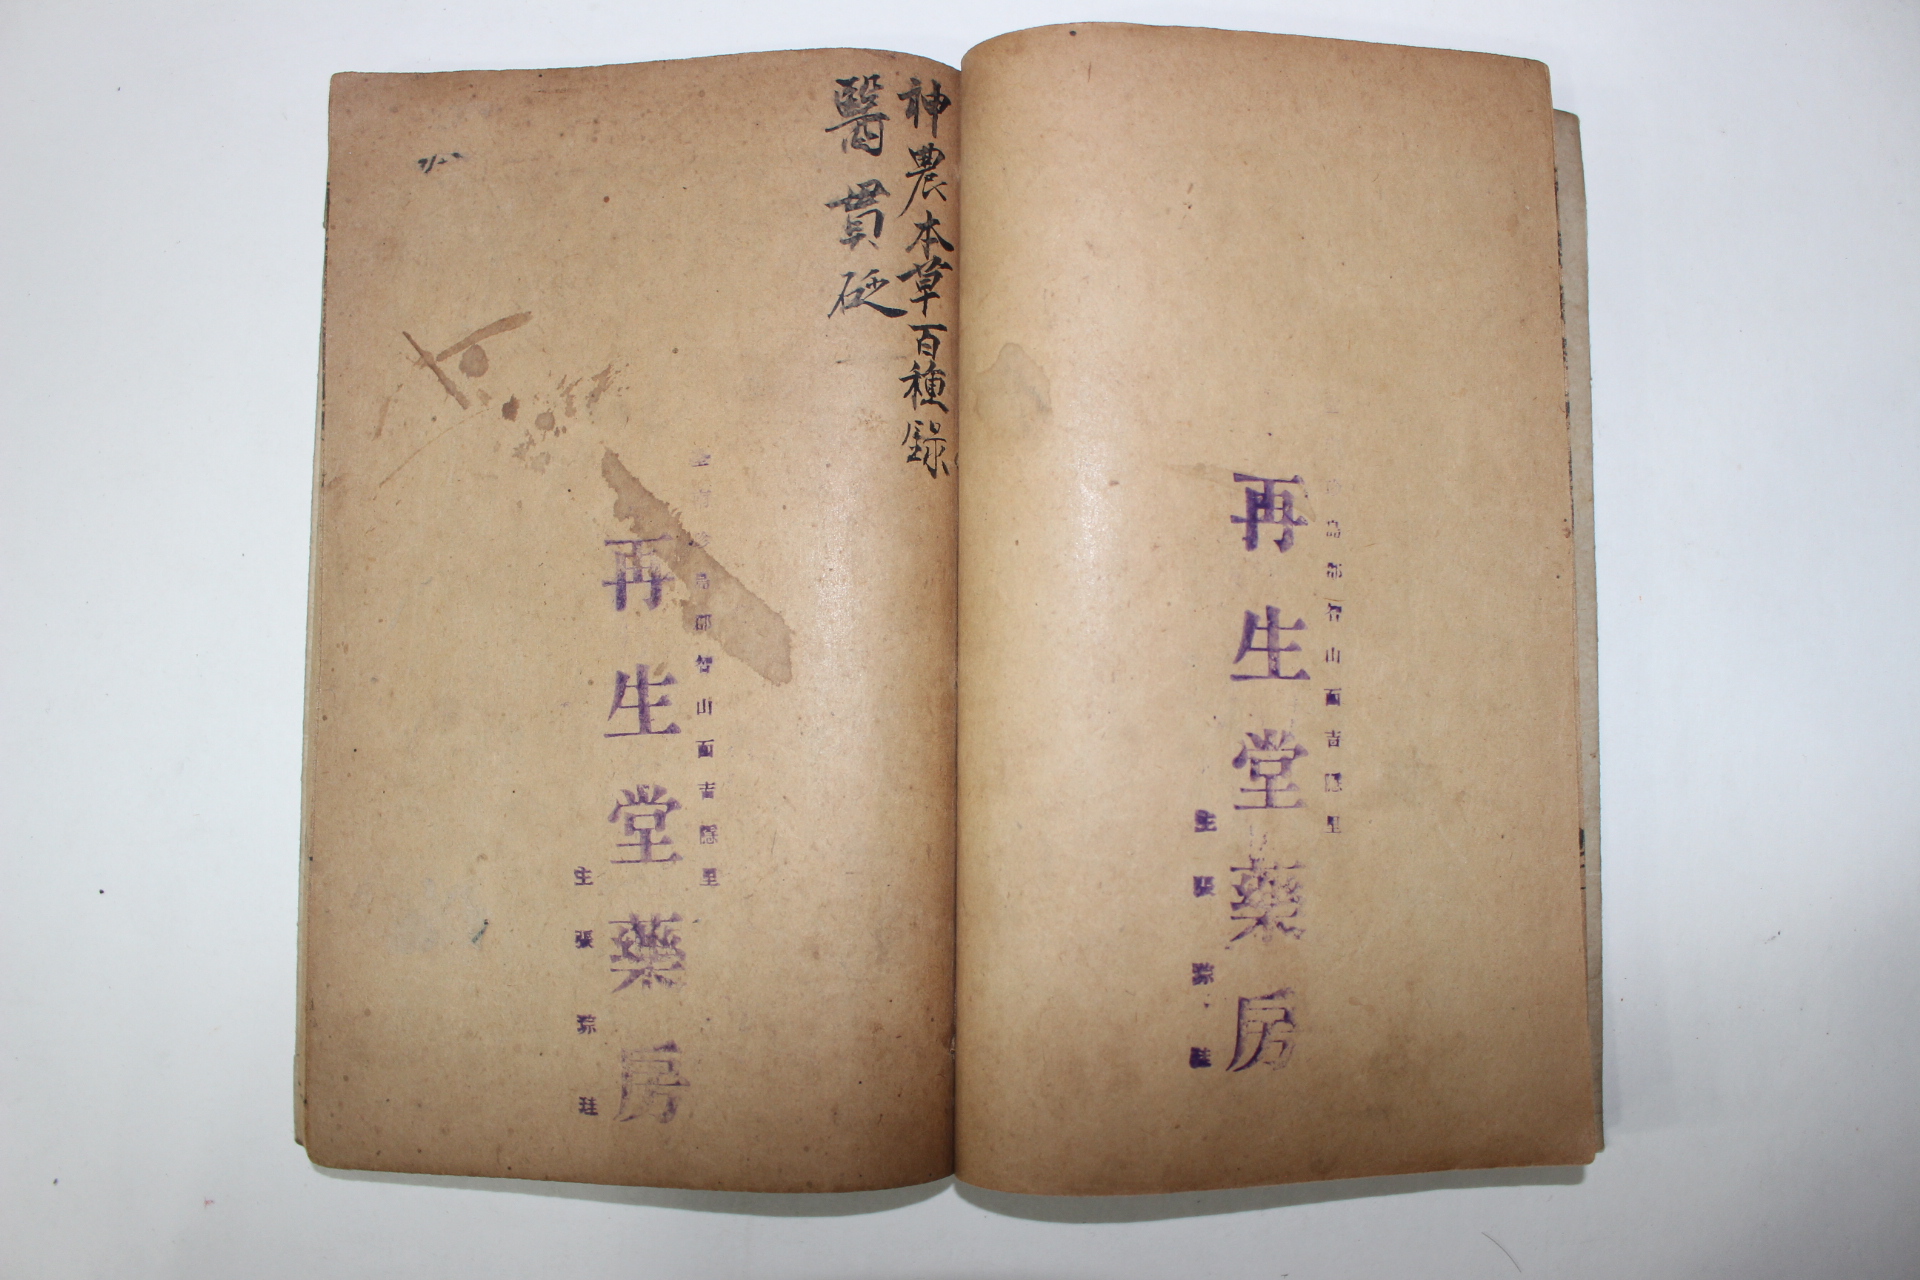 島郡智山面吉隱里
再生堂藥房
主張
神農本草百種錄
醫貫砭
全南珍島郡智山面吉隱里
再生堂藥房
主張